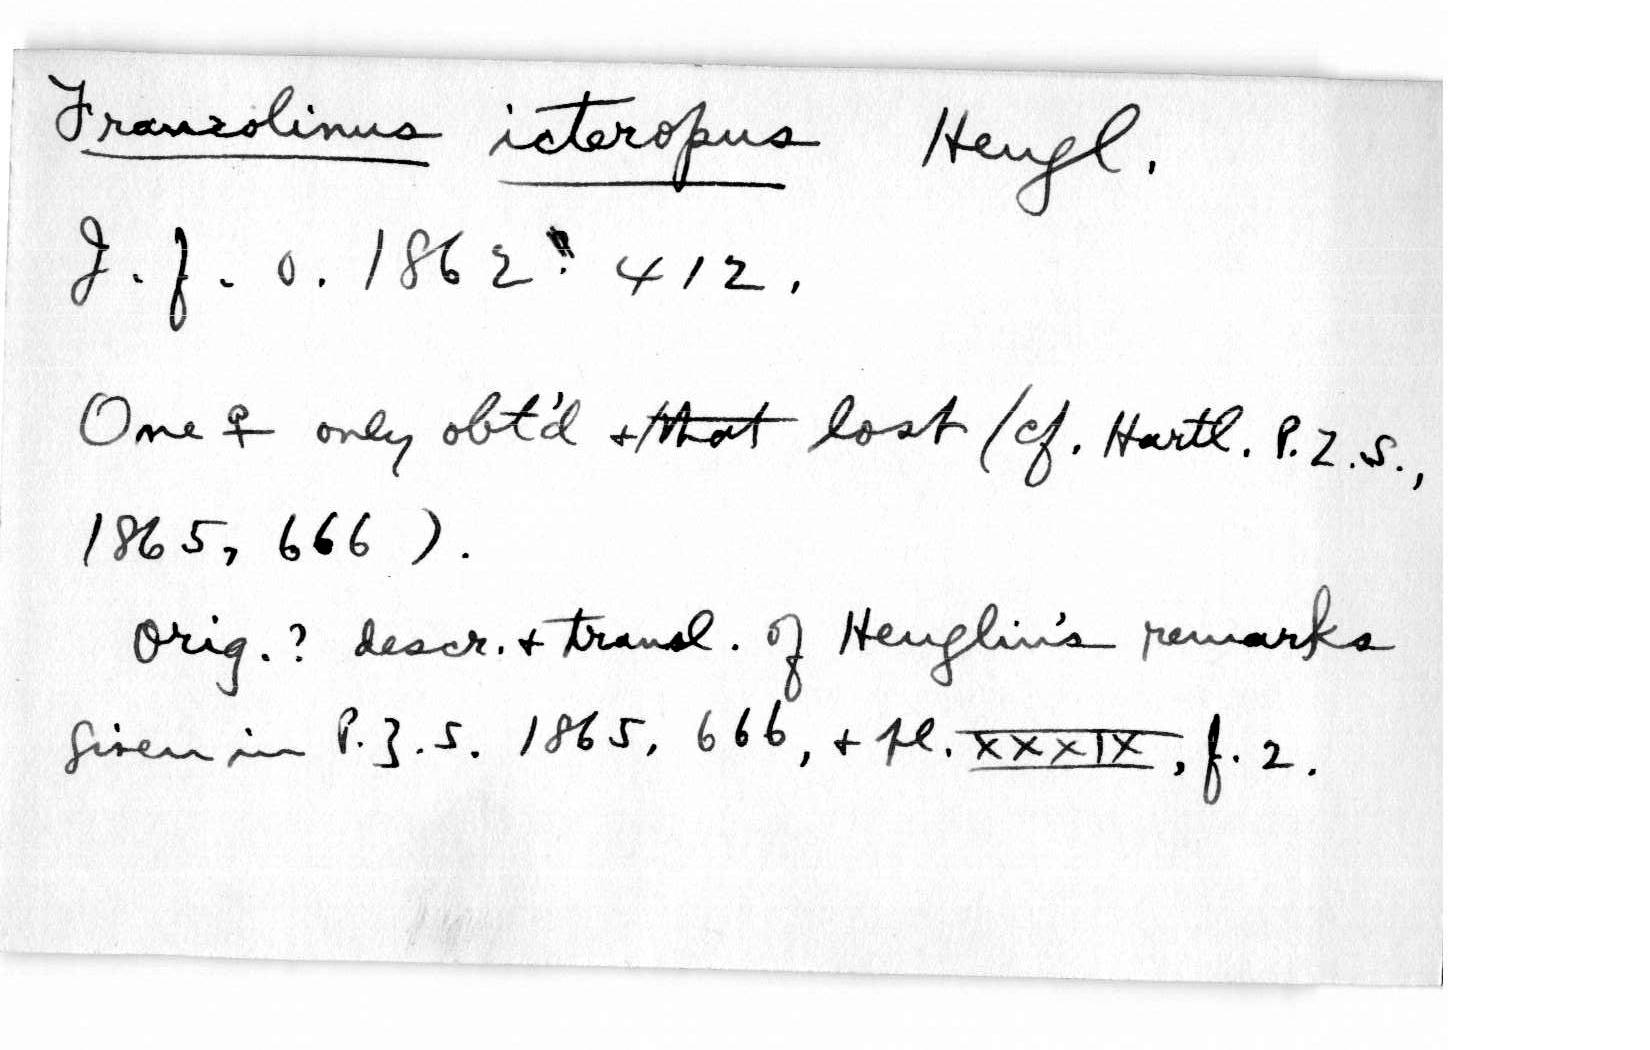 Francolinus icteropus Heugl.
J. f. O. 1862, 412.
One ♀ only obt'd + that lost (cf. Hartl. P.Z.S.,
1865, 666).
Orig.? descr. + transl. of Heuglin's remarks
given in P.Z.S. 1865, 666, + pl. XXXIX, f. 2.